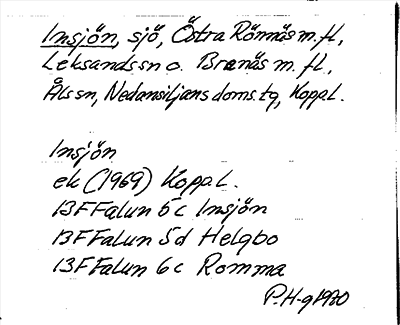 Insjön, sjö, Östra Rönnäs m.fl,
Leksandssn o. Brenäs m.fl,
Ålssn, Nedansiljans doms.tg, Koppl.
Insjön
ek (1969) Koppl.
13F Falun 5c Insjön
13F Falun 5d Helgbo
13F Falun 6c Romma
P.H-g 1970